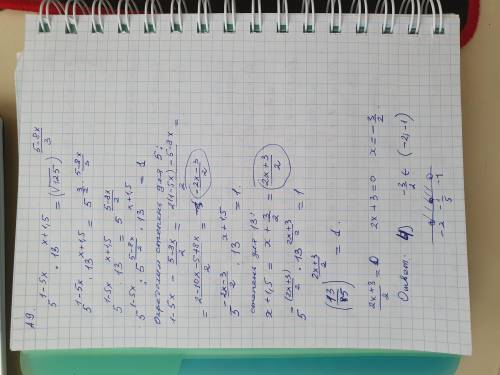 A9. 5^{1-5x} · 13^{x+1,5} = (√125)^{\frac{5-8x}{3}}
5^{1-5x} · 13^{x+1,5} = 5^{\frac{3}{2} · \frac{5-8x}{3}}
5^{1-5x} · 13^{x+1,5} = 5^{\frac{5-8x}{2}}
5^{1-5x} : 5^{\frac{5-8x}{2}} · 13^{x+1,5} = 1
степень для 5:
1-5x - \frac{5-8x}{2} = \frac{2(1-5x)-5-8x}{2} =
= \frac{2-10x-5+8x}{2} = \frac{-2x-3}{2}
5^{\frac{-2x-3}{2}} · 13^{x+1,5} = 1.
степень для 13:
x+1,5 = x + \frac{3}{2} = \frac{2x+3}{2}
5^{-\frac{(2x+3)}{2}} · 13^{\frac{2x+3}{2}} = 1
= 1.
\frac{2x+3}{2} = 0 2x+3=0 x = -\frac{3}{2}.
Ответ: 4) -\frac{3}{2} ∈ (-2;-1)